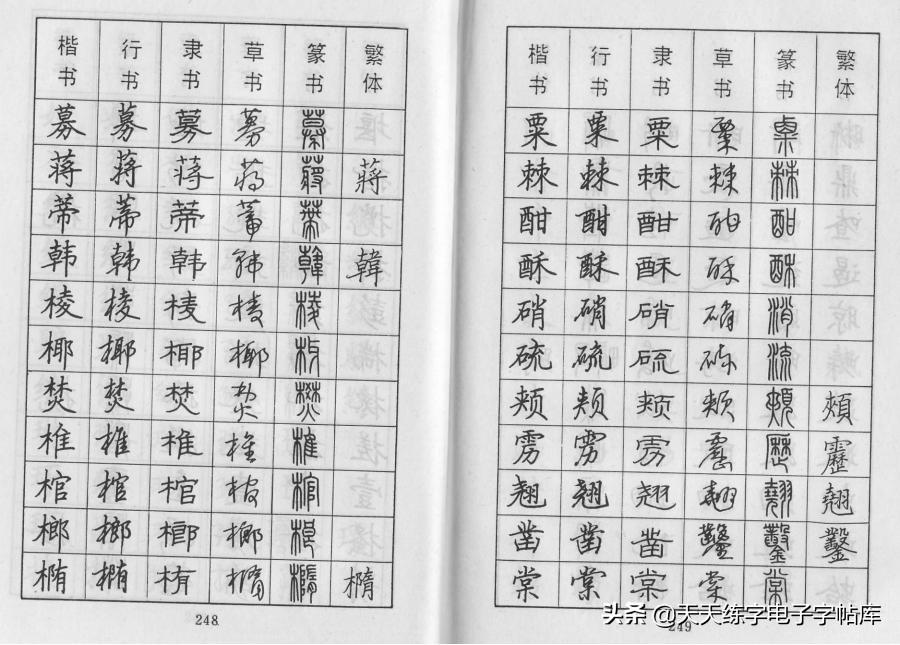 楷书 行书 隶书 草书 篆书 繁体
募 募 募 募 募
蒋 蒋 蒋 蒋 蔣 蔣
蒂 蒂 蒂 蒂 蒂
韩 韩 韩 韩 韓 韓
棱 棱 棱 棱 棱
椰 椰 椰 椰
焚 焚 焚 焚 焚
椎 椎 椎 椎 椎
棺 棺 棺 棺 棺
榔 榔 榔 榔
椭 椭 椭 橢 橢 橢
248
楷书 行书 隶书 草书 篆书 繁体
粟 粟 粟 粟 粟
棘 棘 棘 棘 棘
酣 酣 酣 酣 酣
酥 酥 酥 酥 酥
硝 硝 硝 硝 消
硫 硫 硫 硫 流
颊 颊 颊 颊 頰 頰
雳 雳 雳 靂 靂
翘 翘 翘 翘 翹 翹
凿 凿 凿 鑿 鑿 鑿
棠 棠 棠 棠 棠
249
头条 @天天练字电子字帖库